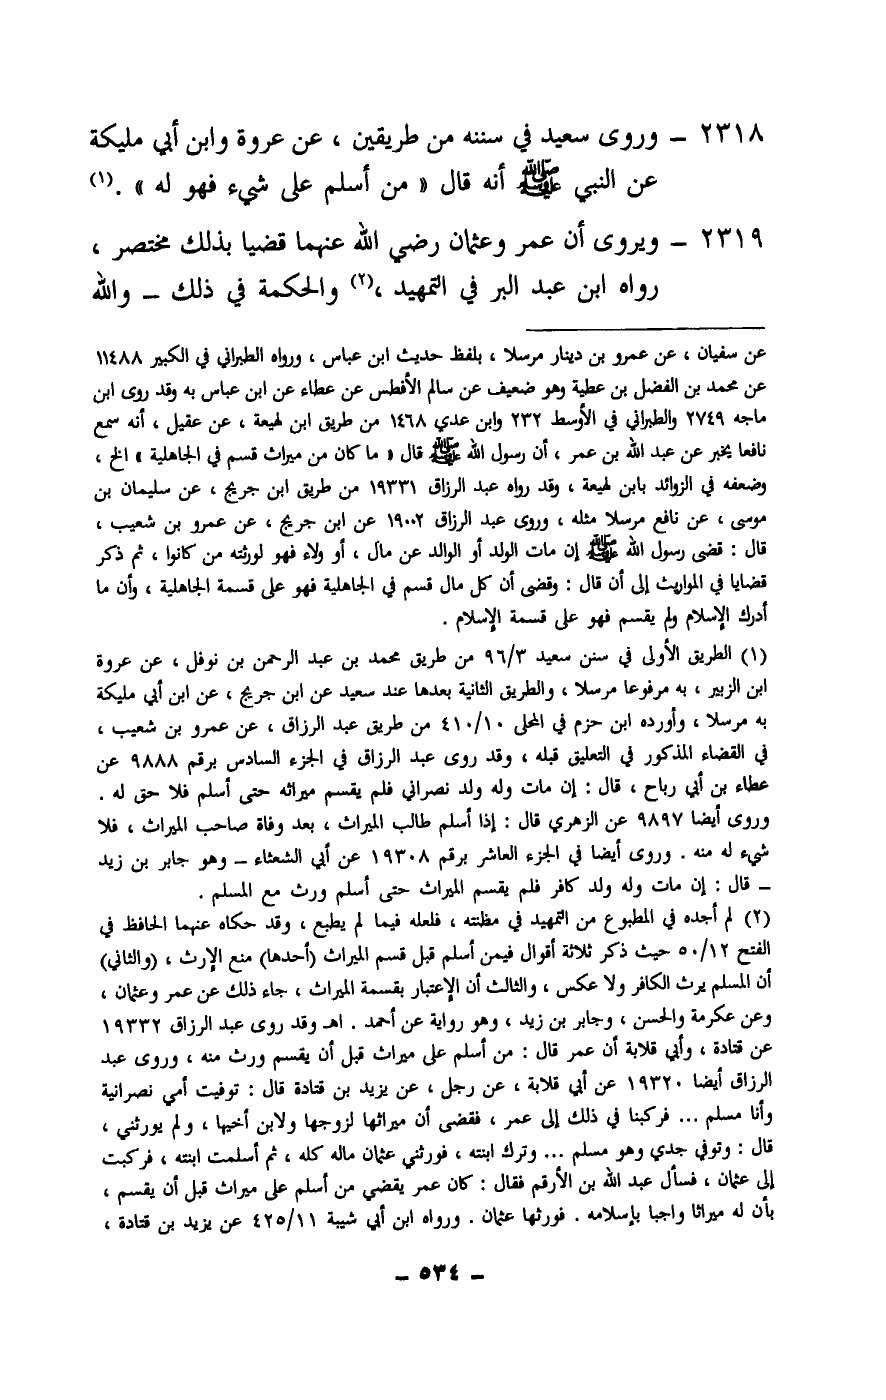 ٢٣١٨ – وروى سعيد في سننه من طريقين ، عن عروة وابن أبي مليكة
عن النبي ﷺ أنه قال « من أسلم على شيء فهو له » .(١)
٢٣١٩ – ويروى أن عمر وعثمان رضي الله عنهما قضيا بذلك مختصر ،
رواه ابن عبد البر في التمهيد ،(٢) والحكمة في ذلك – والله
عن سفيان ، عن عمرو بن دينار مرسلا ، بلفظ حديث ابن عباس ، ورواه الطبراني في الكبير ١١٤٨٨
عن محمد بن الفضل بن عطية وهو ضعيف عن سالم الأفطس عن عطاء عن ابن عباس به وقد روى ابن
ماجه ٢٧٤٩ والطبراني في الأوسط ٢٣٢ وابن عدي ١٤٦٨ من طريق ابن لهيعة ، عن عقيل ، أنه سمع
نافعا يخبر عن عبد الله بن عمر ، أن رسول الله ﷺ قال « ما كان من ميراث قسم في الجاهلية » الخ ،
وضعفه في الزوائد بابن لهيعة ، وقد رواه عبد الرزاق ١٩٣٣١ من طريق ابن جريج ، عن سليمان بن
موسى ، عن نافع مرسلا مثله ، وروى عبد الرزاق ١٩٠٠٢ عن ابن جريج ، عن عمرو بن شعيب ،
قال : قضى رسول الله ﷺ إن مات الولد أو الوالد عن مال ، أو ولاء فهو لورثته من كانوا ، ثم ذكر
قضايا في المواريث إلى أن قال : وقضى أن كل مال قسم في الجاهلية فهو على قسمة الجاهلية ، وأن ما
أدرك الإسلام ولم يقسم فهو على قسمة الإسلام .
(١) الطريق الأولى في سنن سعيد ٩٦/٣ من طريق محمد بن عبد الرحمن بن نوفل ، عن عروة
ابن الزبير ، به مرفوعا مرسلا ، والطريق الثانية بعدها عند سعيد عن ابن جريج ، عن ابن أبي مليكة
به مرسلا ، وأورده ابن حزم في المحلى ٤١٠/١٠ من طريق عبد الرزاق ، عن عمرو بن شعيب ،
في القضاء المذكور في التعليق قبله ، وقد روى عبد الرزاق في الجزء السادس برقم ٩٨٨٨ عن
عطاء بن أبي رباح ، قال : إن مات وله ولد نصراني فلم يقسم ميراثه حتى أسلم فلا حق له .
وروى أيضا ٩٨٩٧ عن الزهري قال : إذا أسلم طالب الميراث ، بعد وفاة صاحب الميراث ، فلا
شيء له منه . وروى أيضا في الجزء العاشر برقم ١٩٣٠٨ عن أبي الشعثاء – وهو جابر بن زيد
– قال : إن مات وله ولد كافر فلم يقسم الميراث حتى أسلم ورث مع المسلم .
(٢) لم أجده في المطبوع من التمهيد في مظنته ، فلعله فيما لم يطبع ، وقد حكاه عنهما الحافظ في
الفتح ٥٠/١٢ حيث ذكر ثلاثة أقوال فيمن أسلم قبل قسم الميراث (أحدها) منع الإرث ، (والثاني)
أن المسلم يرث الكافر ولا عكس ، والثالث أن الإعتبار بقسمة الميراث ، جاء ذلك عن عمر وعثمان ،
وعن عكرمة والحسن ، وجابر بن زيد ، وهو رواية عن أحمد . اهـ وقد روى عبد الرزاق ١٩٣٣٢
عن قتادة ، وأبي قلابة أن عمر قال : من أسلم على ميراث قبل أن يقسم ورث منه ، وروى عبد
الرزاق أيضا ١٩٣٢٠ عن أبي قلابة ، عن رجل ، عن يزيد بن قتادة قال : توفيت أمي نصرانية
وأنا مسلم ... فركبنا في ذلك إلى عمر ، فقضى أن ميراثها لزوجها ولابن أخيها ، ولم يورثني ،
قال : وتوفي جدي وهو مسلم ... وترك ابنته ، فورثني عثمان ماله كله ، ثم أسلمت ابنته ، فركبت
إلى عثمان ، فسأل عبد الله بن الأرقم فقال : كان عمر يقضي من أسلم على ميراث قبل أن يقسم ،
بأن له ميراثا واجبا بإسلامه . فورثها عثمان . ورواه ابن أبي شيبة ٤٢٥/١١ عن يزيد بن قتادة ،
– ٥٣٤ –